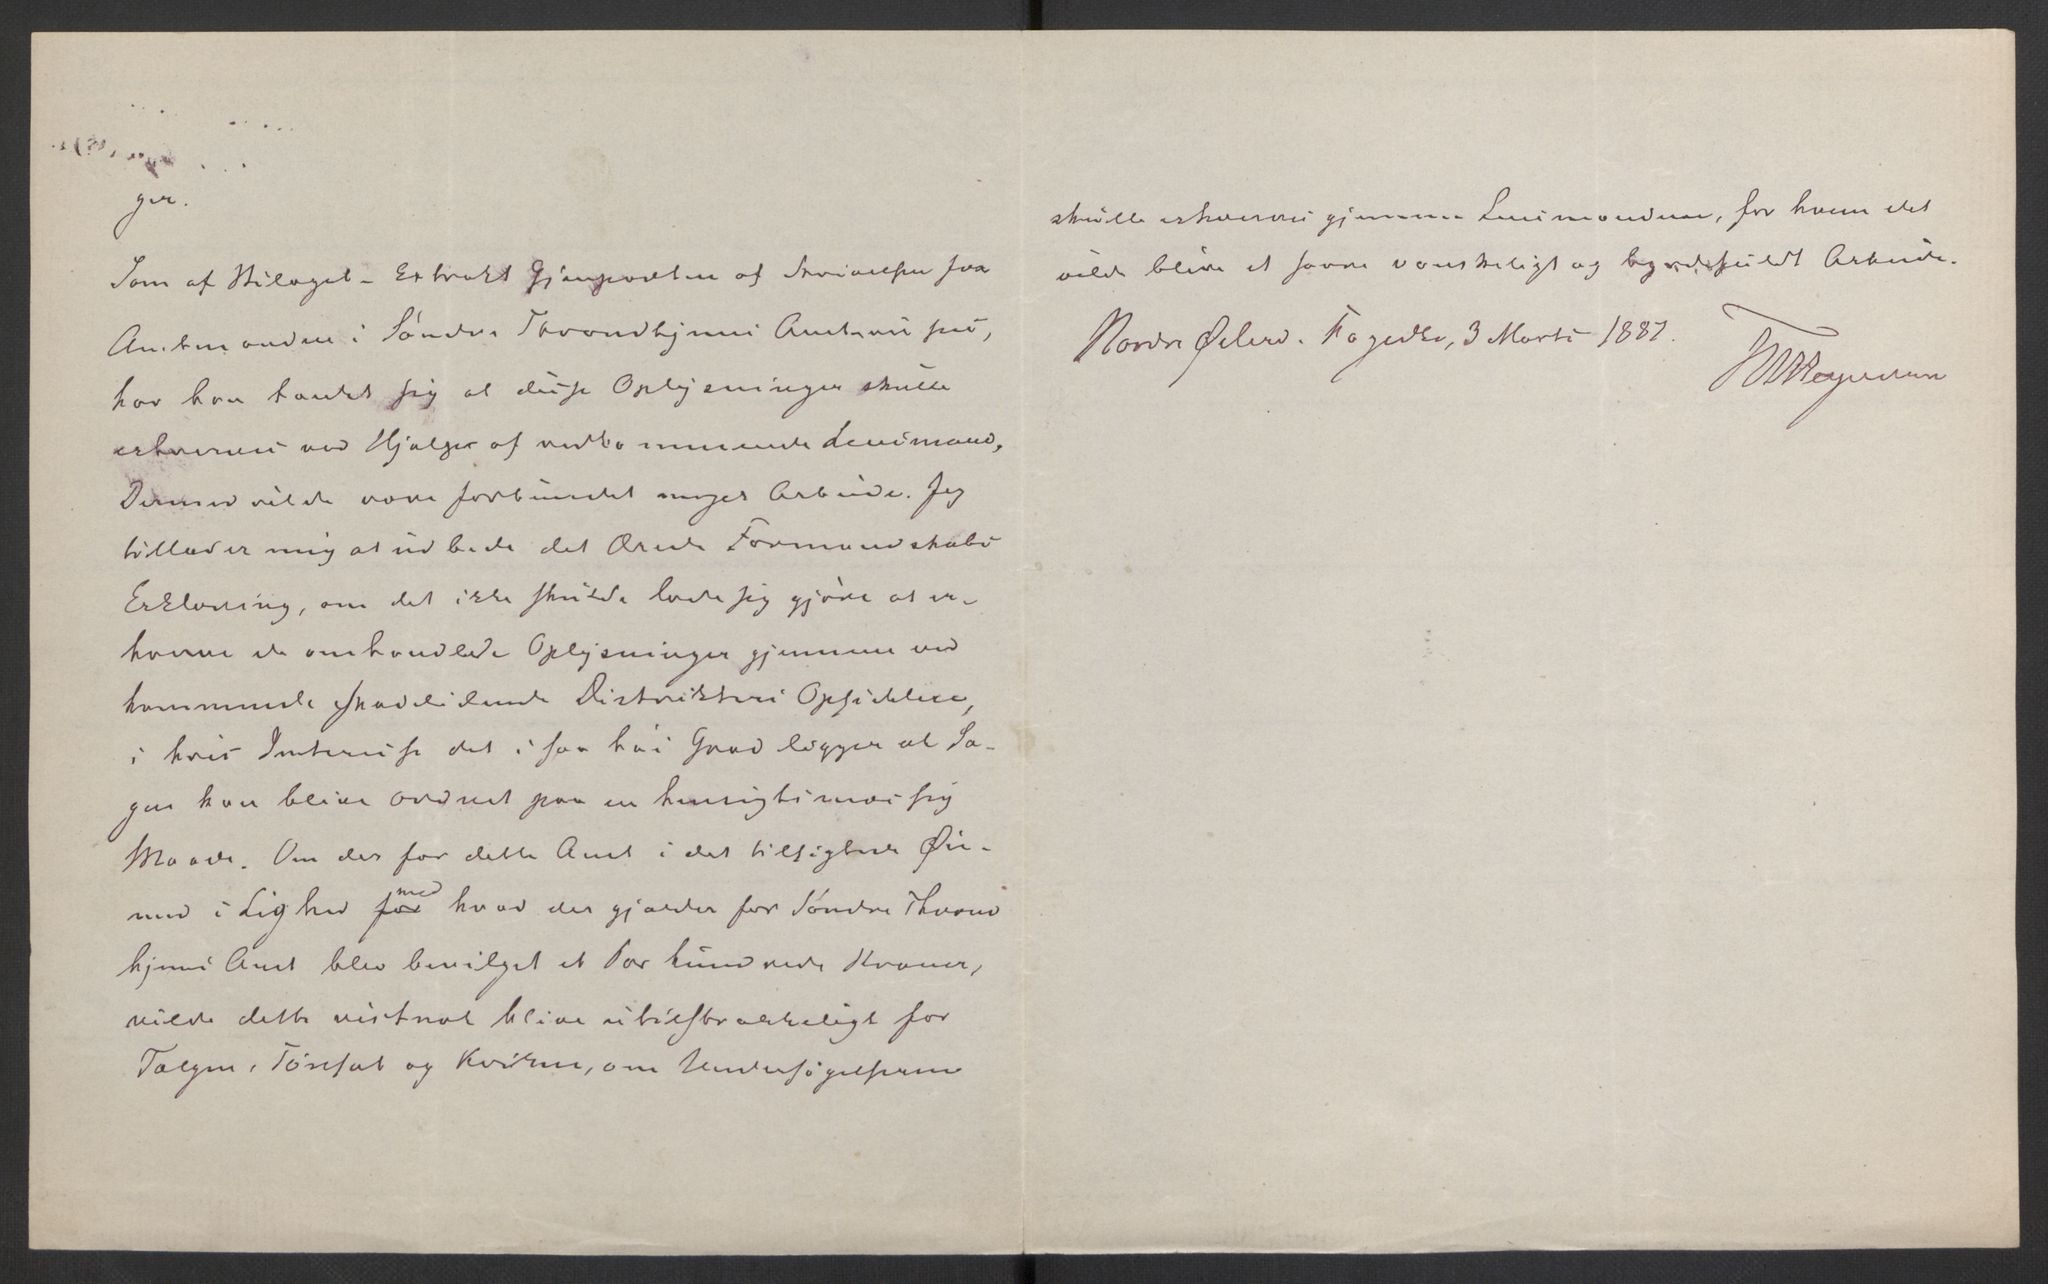 ger.
Som af Bilaget – Extrakt Gjenparten af Skrivelsen fra
Amtmanden i Søndre Throndhjems Amt vil sees,
har han tænkt sig at disse Oplysninger skulle
erhverves ved Hjælp af vedkommende Lensmænd.
Dermed vilde være forbundet meget Arbeide. Jeg
tillader mig at udbede det Ærede Formandskabs
Erklæring, om det ikke skulde lade sig gjøre at er-
hverve de omhandlede Oplysninger gjennem ved
kommende skadelidende Distrikters Opsiddere,
i hvis Interesse det i saa høi Grad ligger at Sa-
gen kan blive ordnet paa en hensigtsmæssig
Maade. Om der for dette Amt i det tilsigtede Øie-
med i Lighed for med hvad der gjælder for Søndre Thrond
hjems Amt blev bevilget et Par hundrede Kroner,
vilde dette vistnok blive utilstrækkeligt for
Tolgen, Tønset og Kvikne, om Undersøgelserne
skulle erhverves gjennem Lensmændene, for hvem det
vilde blive et saare vanskeligt og byrdefuldt Arbeide.
Nordre Østerd. Fogedko, 3 Marts 1887.